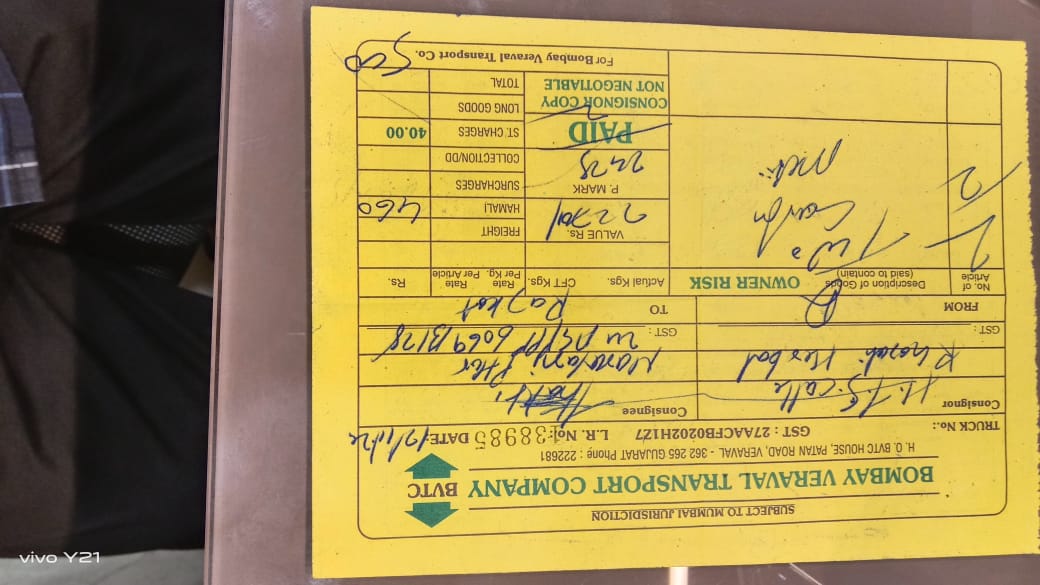 SUBJECT TO MUMBAI JURISDICTION
BOMBAY VERAVAL TRANSPORT COMPANY BVTC
H. O. BVTC HOUSE, PATAN ROAD, VERAVAL - 362 265 GUJARAT Phone : 222681
TRUCK No.: GST : 27AACFB0202H1Z7 L.R. No.: 138985 DATE:
Consignor Consignee
Khadi Herbal
GST : GST :
FROM TO Rajkot
No. of Article Description of Goods (said to contain) OWNER RISK Actual Kgs. CFT Kgs. Rate Per Kg. Rate Per Article Rs.
2 Two VALUE Rs. FREIGHT
HAMALI 460
P. MARK SURCHARGES
2 COLLECTION/DD
PAID ST. CHARGES 40.00
CONSIGNOR COPY LONG GOODS
NOT NEGOTIABLE TOTAL
For Bombay Veraval Transport Co. 500
vivo Y21